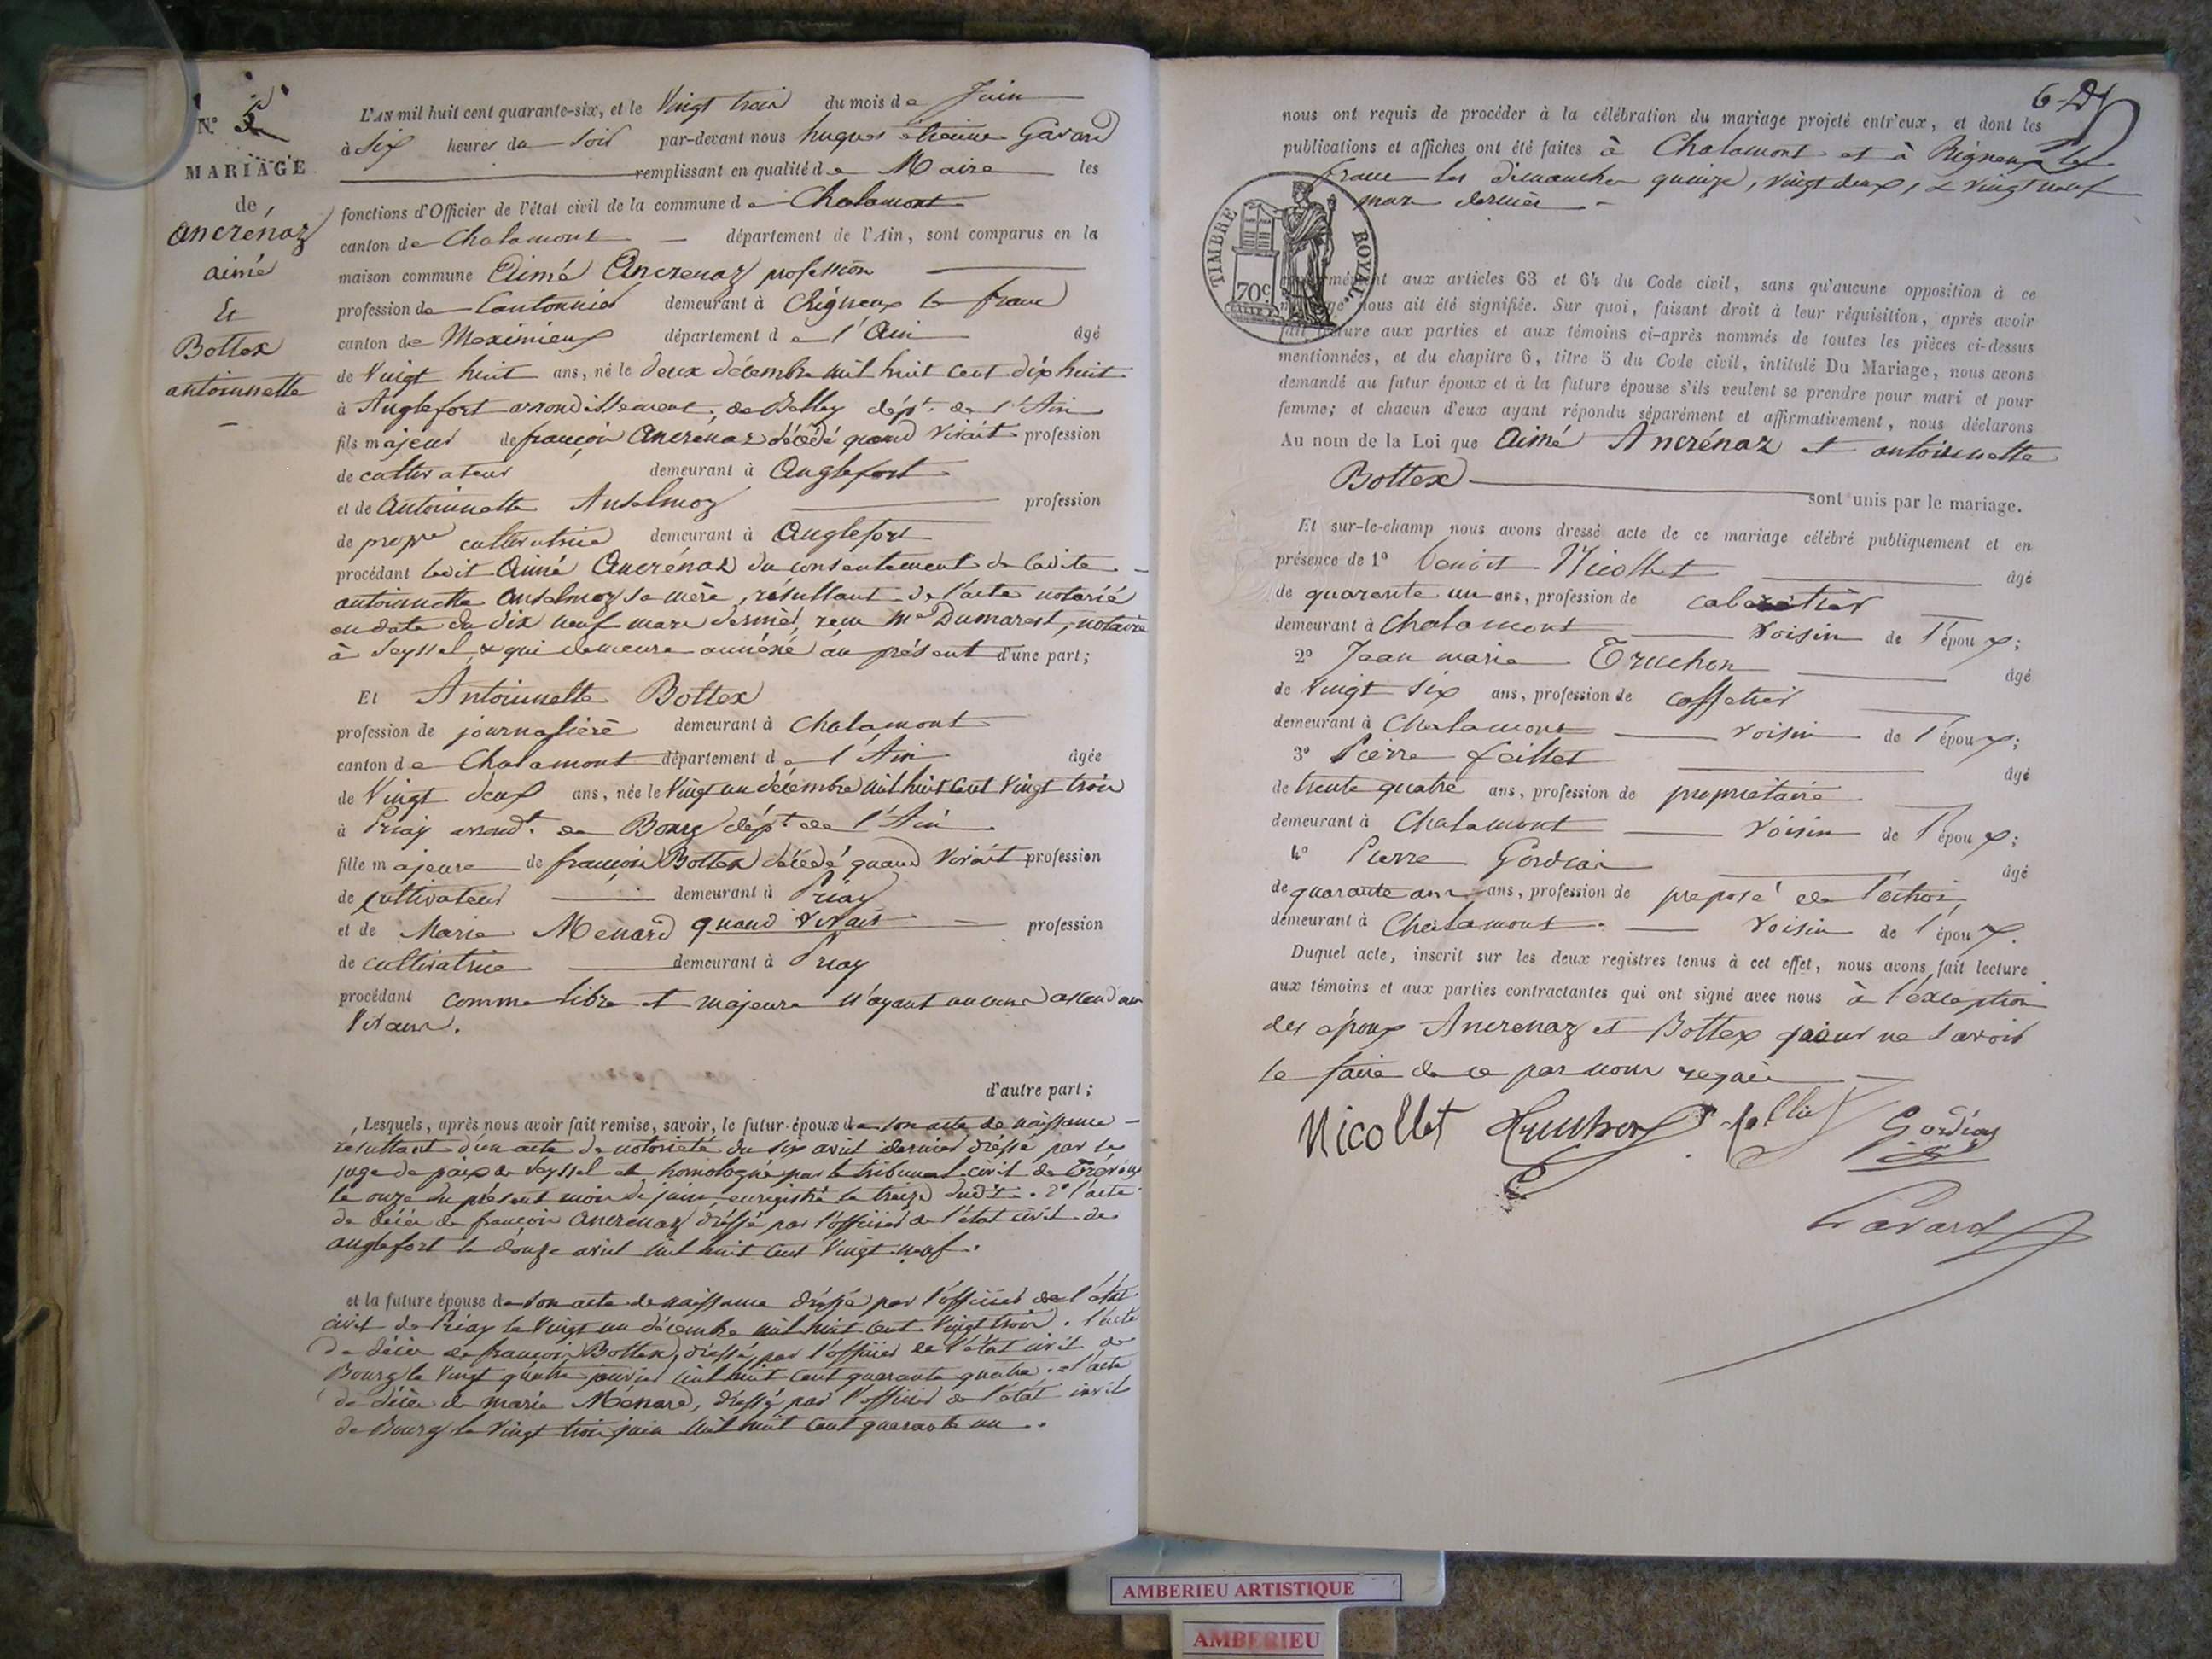 N.° 5
MARIAGE
de
ancrénaz
aimé
Et
Bottex
antoinette
L'AN mil huit cent quarante-six, et le Vingt trois du mois de Juin
à Six heures du Soir par-devant nous hugues étienne Gavard
remplissant en qualité de Maire les
fonctions d'Officier de l'état civil de la commune de Chalamont
canton de Chalamont département de l'Ain, sont comparus en la
maison commune Aimé Ancrenaz profession
profession de Cantonnier demeurant à Rigneux le franc
canton de Meximieux département de l'Ain âgé
de Vingt huit ans, né le deux décembre mil huit cent dix huit
à Anglefort arrondissement de Belley dépt. de l'Ain
fils majeur de françois Ancrénaz décédé quand vivait profession
de cultivateur demeurant à Anglefort
et de Antoinette Anselmoz profession
de propre cultivatrice demeurant à Anglefort
procédant ledit Aimé Ancrénaz du consentement de ladite
antoinette Anselmoz sa mère, résultant de l'acte notarié
en date du dix neuf mars dernier, reçu Me Dumarest, notaire
à Seyssel & qui demeure annéxé au présent d'une part;
Et Antoinette Bottex
profession de journalière demeurant à Chalamont
canton de Chalamont département de l'Ain âgée
de Vingt deux ans, née le Vingt un décembre mil huit cent Vingt trois
à Priay arrondt. de Bourg dépt de l'Ain
fille majeure de françois Bottex décédé quand vivait profession
de cultivateur demeurant à Priay
et de Marie Ménard quand vivait profession
de cultivatrice demeurant à Priay
procédant comme libre et majeure n'ayant aucun ascendan
Vivant.
d'autre part;
Lesquels, après nous avoir fait remise, savoir, le futur époux de son acte de naissance
résultant d'un acte de notoriété du six avril dernier dressé par le
juge de paix de Seyssel et homologué par le tribunal civil de Trévoux
le onze du présent mois de juin enregistré le treize dudit. 2° l'acte
de décès de françois Ancrenaz dressé par l'officier de l'état civil de
anglefort le douze avril mil huit cent Vingt neuf.
et la future épouse de son acte de naissance dressé par l'officier de l'état
civil de Priay le Vingt un décembre mil huit cent Vingt trois. l'acte
de décès de françois Bottex, dressé par l'officier de l'état civil de
Bourg le Vingt quatre janvier mil huit cent quarante quatre. et l'acte
de décès de marie Ménard, dressé par l'officier de l'état civil
de Bourg le Vingt trois juin mil huit cent quarante un.
nous ont requis de procéder à la célébration du mariage projeté entr'eux, et dont les
publications et affiches ont été faites à Chalamont et à Rigneux le
franc les dimanches quinze, vingt deux, & vingt neuf
mars dernier
TIMBRE ROYAL
70c
aux articles 63 et 64 du Code civil, sans qu'aucune opposition à ce
nous ait été signifiée. Sur quoi, faisant droit à leur réquisition, après avoir
fait lecture aux parties et aux témoins ci-après nommés de toutes les pièces ci-dessus
mentionnées, et du chapitre 6, titre 5 du Code civil, intitulé Du Mariage, nous avons
demandé au futur époux et à la future épouse s'ils veulent se prendre pour mari et pour
femme; et chacun d'eux ayant répondu séparément et affirmativement, nous déclarons
Au nom de la Loi que Aimé Ancrénaz et antoinette
Bottex sont unis par le mariage.
Et sur-le-champ nous avons dressé acte de ce mariage célébré publiquement et en
présence de 1° benoit Nicollet âgé
de quarante un ans, profession de cabaretier
demeurant à Chalamont voisin de l'époux;
2° Jean marie Truchon âgé
de Vingt six ans, profession de caffetier
demeurant à Chalamont voisin de l'époux;
3° Pierre faillet âgé
de trente quatre ans, profession de propriétaire
demeurant à Chalamont voisin de l'époux;
4° Pierre Gordiat âgé
de quarante ans, profession de préposé de l'octroi
demeurant à Chalamont voisin de l'époux.
Duquel acte, inscrit sur les deux registres tenus à cet effet, nous avons fait lecture
aux témoins et aux parties contractantes qui ont signé avec nous à l'exception
des époux Ancrenaz et Bottex pour ne savoir
le faire de ce par nous requis
Nicollet Truchon Gordiat
Gavard
AMBERIEU ARTISTIQUE
AMBERIEU